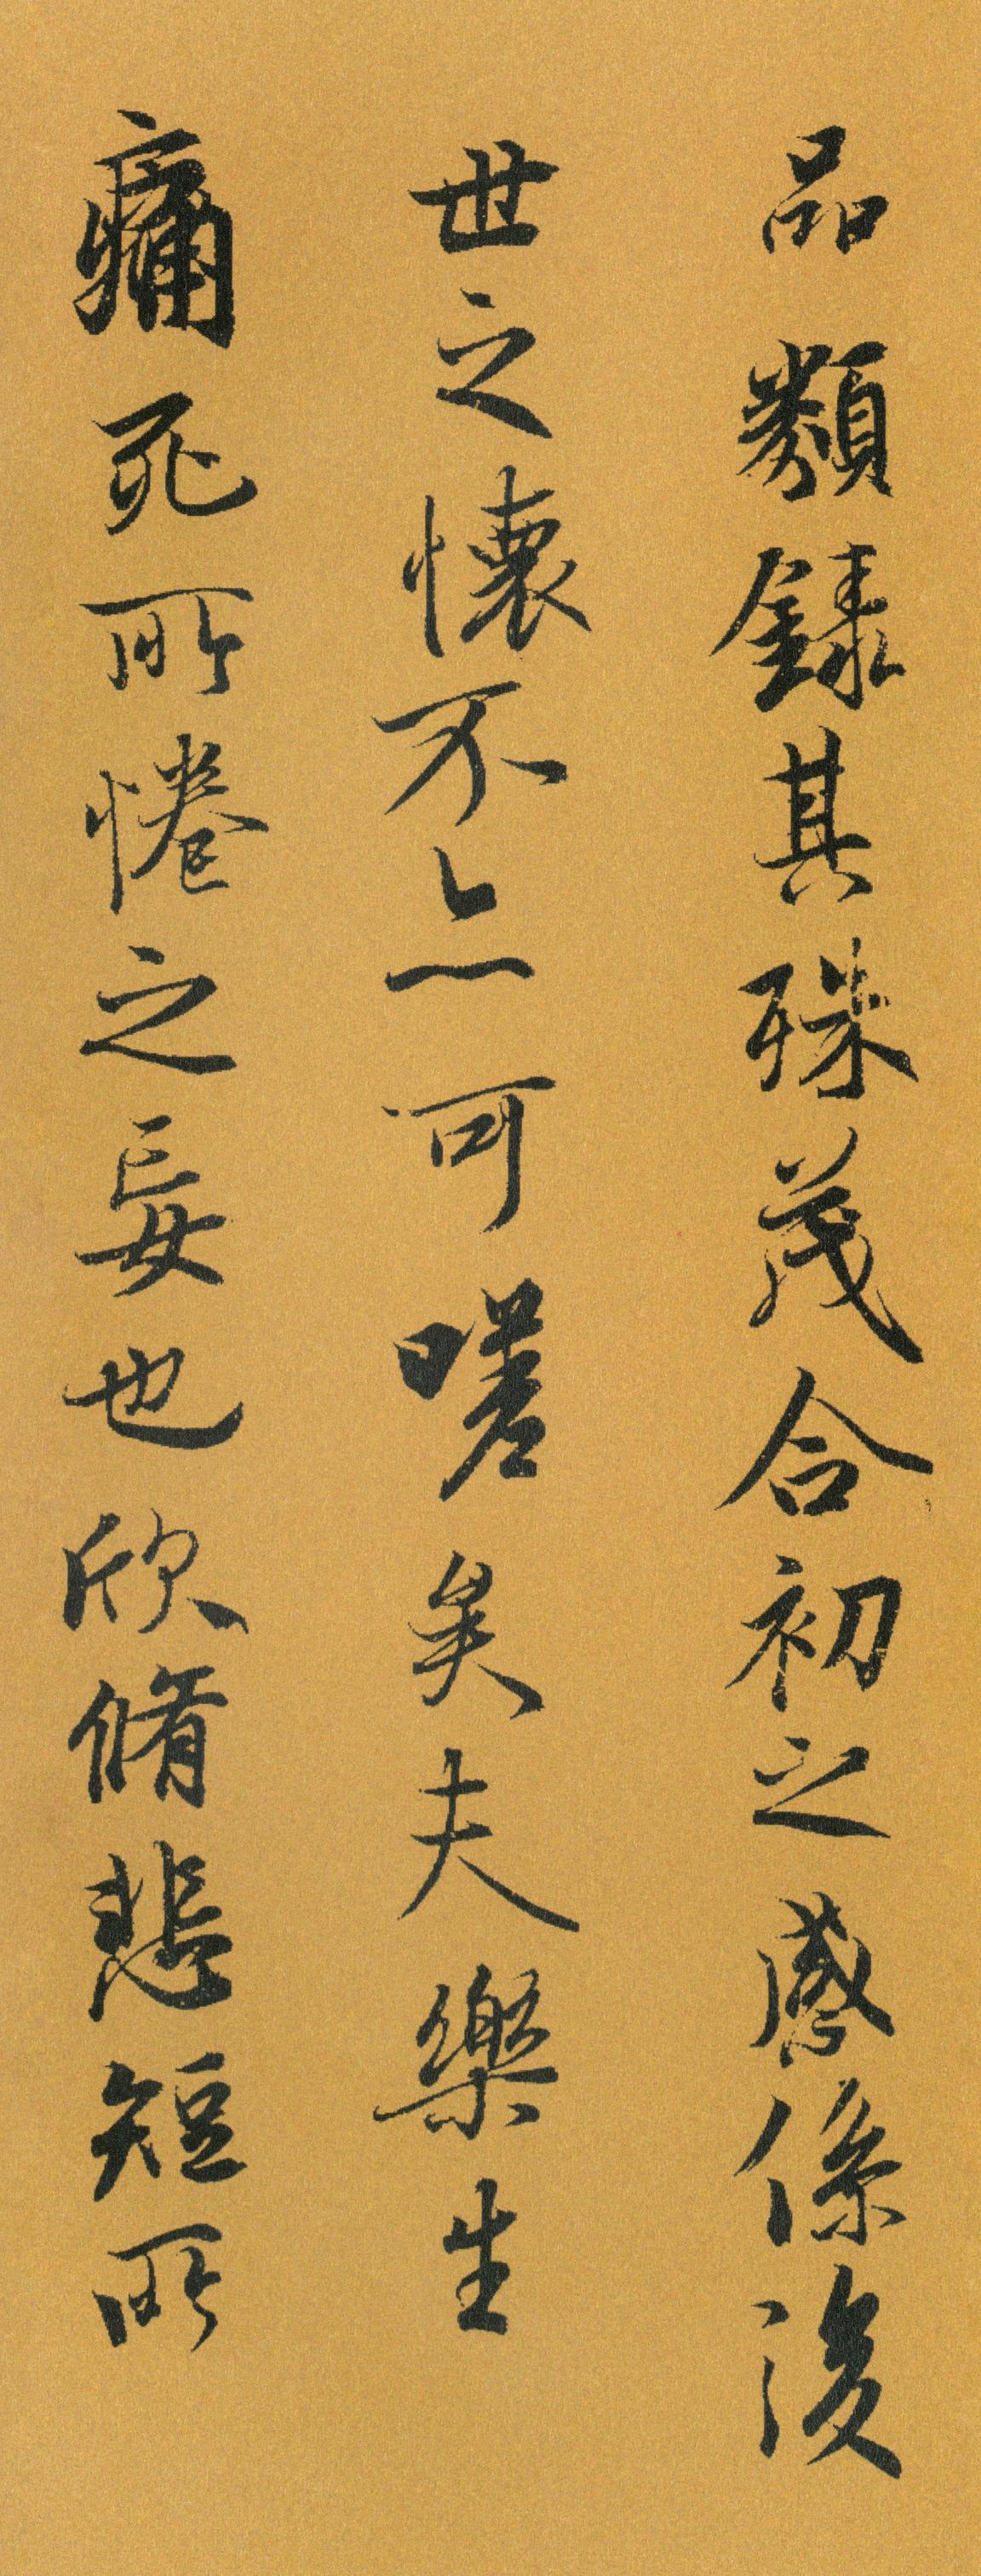 品類録其殊茂合初之感係後
世之懐不亦可嗟矣夫樂生
痛死所惓之妄也欣脩悲短所